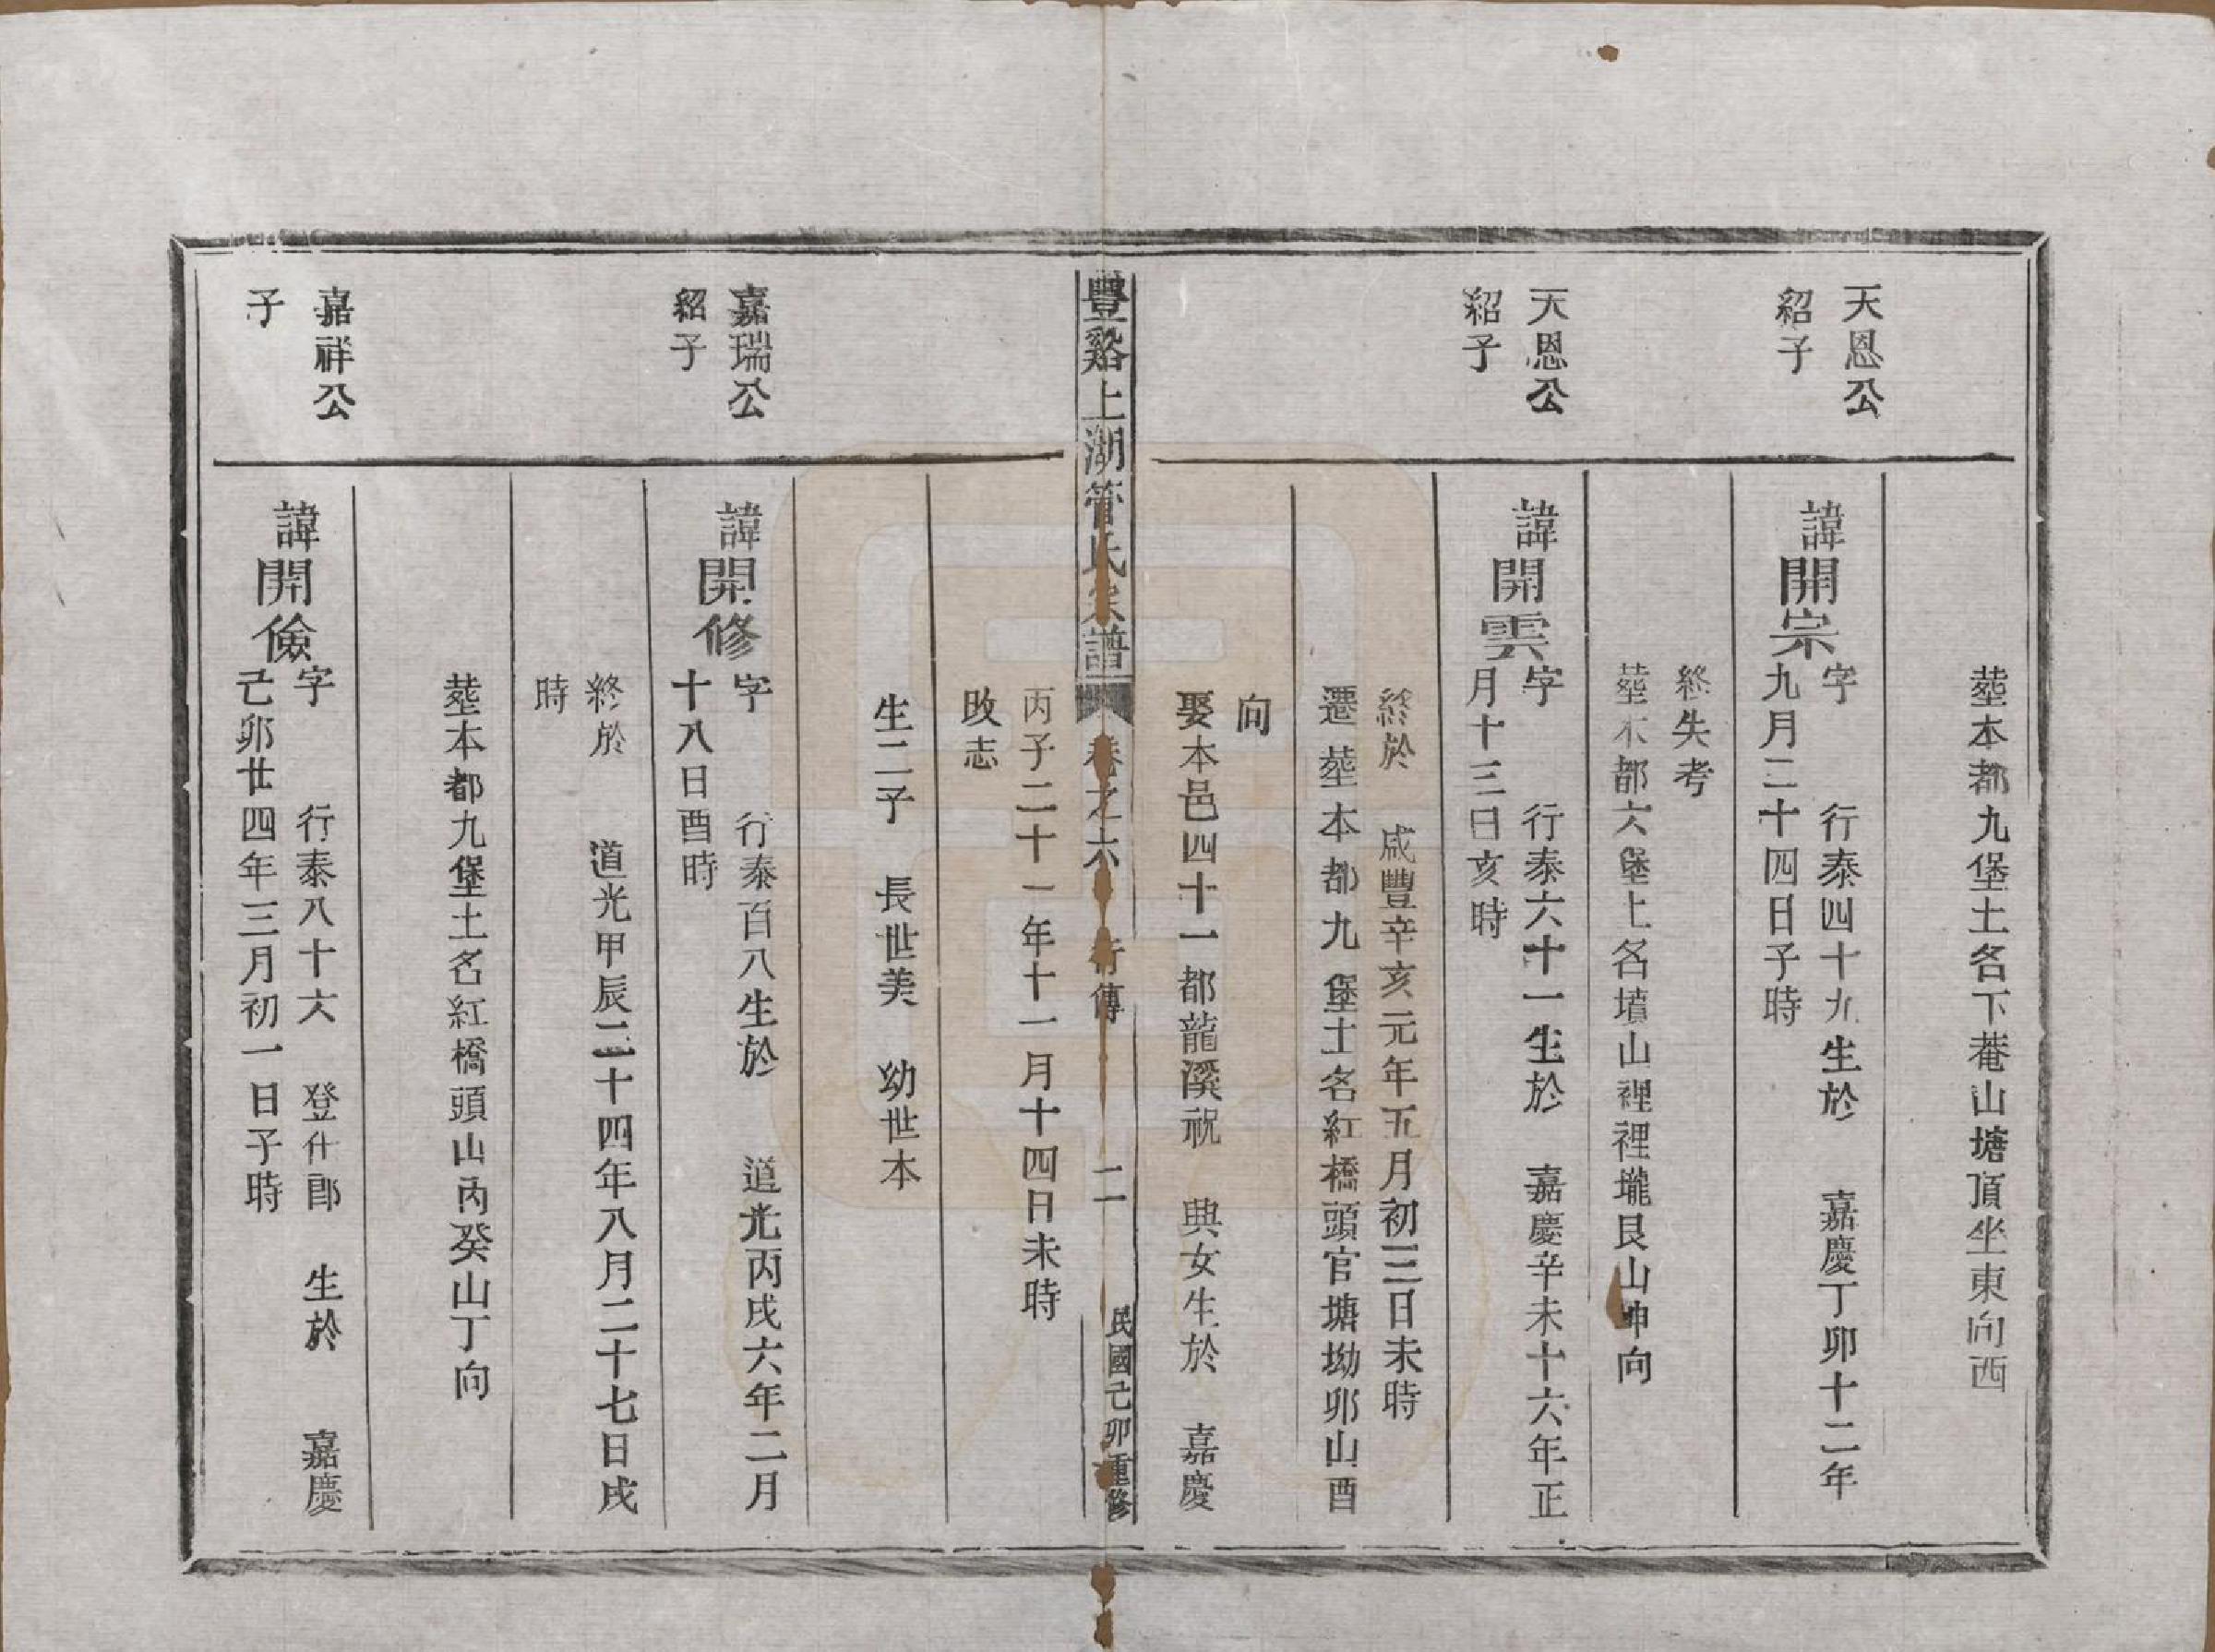 塟本都九堡土名下菴山塘頂坐東向西
天恩公
紹子
諱開宗
字　行泰四十九生於　嘉慶丁卯十二年
九月二十四日子時
終失考
塟本都六堡土名墳山裡裡壠艮山坤向
天恩公
紹子
諱開雲
字　行泰六十一生於　嘉慶辛未十六年正
月十三日亥時
終於　咸豐辛亥元年五月初三日未時
遷塟本都九堡土名紅橋頭官塘坳卯山酉
向
娶本邑四十一都龍溪祝　典女生於　嘉慶
豐谿上湖管氏宗譜　卷之六　行傳　二　民國己卯重修
丙子二十一年十一月十四日未時
改志
生二子　長世美　幼世本
嘉瑞公
紹子
諱開修
字　行泰百八生於　道光丙戌六年二月
十八日酉時
終於　道光甲辰二十四年八月二十七日戌
時
塟本都九堡土名紅橋頭山丙癸山丁向
嘉祥公
子
諱開儉
字　行泰八十六　登仕郎　生於　嘉慶
己卯廿四年三月初一日子時